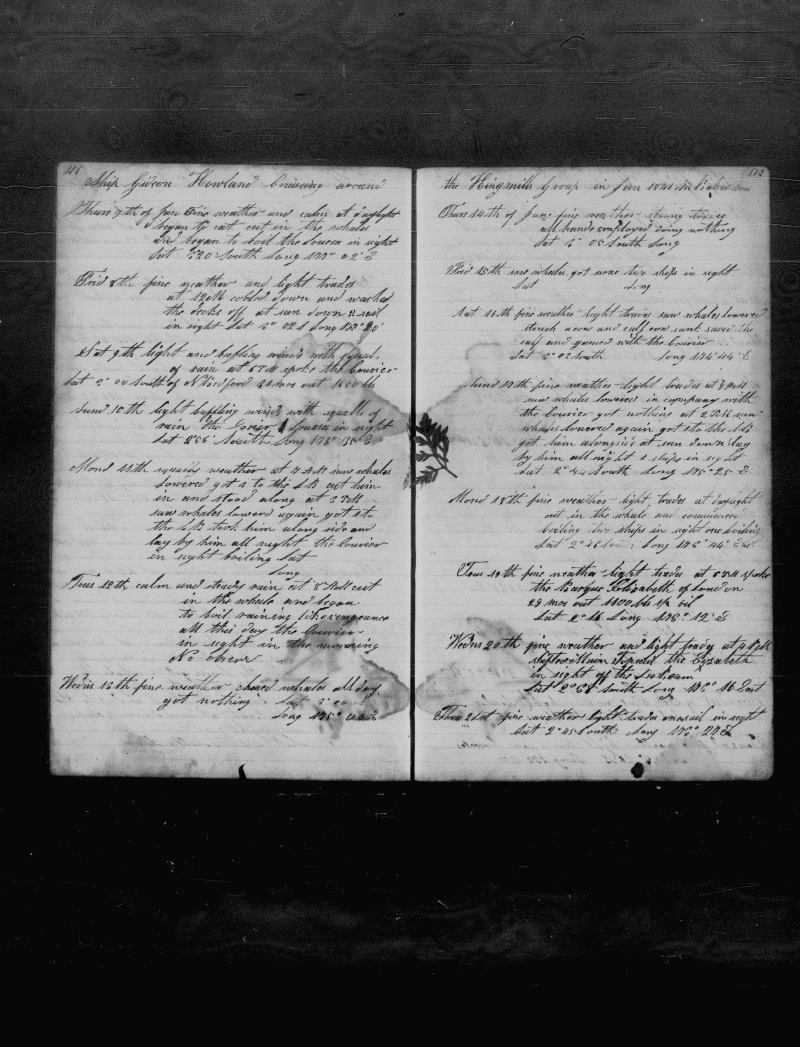 116
Ship Gideon Howland Cruiseing around
Thurs 7th of Jan fine weather and calm at daylight
began to cut cut in the whales
and began to boil the Louisa in sight
Lat 2° 20 South Long 175° 02' E
Frid 8th fine weather and light trades
at 12 M cobbled down and washed
the decks off at sun down a sail
in sight Lat 3° 02 S Long 175° 20'
Sat 9th light and baffling winds with squals
of rain at 5 PM spoke the Courier
Lat 3° 00 South of N Bedford 21 mos out 1650 bls
Sund 10th light baffling winds with squalls of
rain the Courier & Louisa in sight
Lat 2° 56' South Long 175° 35' E
Mond 11th squaly weather at 7 AM saw whales
lowered got 1 to the LB cut him
in and stood along at 3 PM
saw whales lowered again got 1 to
the LB took him along side and
lay by him all night the Courier
in sight boiling Lat
Long
Tues 12th calm and steady rain at 8 AM cut
in the whale and began
to boil raining like vengeance
all this day the Courier
in sight in the morning
No observ
Wedns 13th fine weather chased whales all day
got nothing Lat 3°
Long 175° 00 E
113
the Kingmills Group in Jan 1841
Thurs 14th of Jan fine weather strong trades
all hands employed doing nothing
Lat 3° 05 South Long
Frid 15th saw whales got none two ships in sight
Lat Long
Sat 16th fine weather light trades saw whales lowered
struck a cow and calf cow sunk saved the
calf and gamed with the Courier
Lat 3° 03 South Long 174° 44' E
Sund 17th fine weather light trades at 8 AM
saw whales lowered in company with
the Courier got nothing at 2 PM saw
whales lowered again got 1 to the LB
got him alongside at sun down lay
by him all night 2 ships in sight
Lat 2° 44 South Long 175° 25' E
Mond 18th fine weather light trades at daylight
cut in the whale and commenced
boiling two ships in sight one boiling
Lat 2° 36 Long 175° 44' East
Tues 19th fine weather light trades at 5 PM spoke
the Barque Elizabeth of London
29 mos out 1100 bls sp oil
Lat 2° 46 Long 176° 12' E
Wedns 20th fine weather and light trades at 4 PM
the Elizabeth
in sight of the
Lat 2° 58 South Long 176° 16 East
Thur 21st fine weather light trades one sail in sight
Lat 2° 45 South Long 176° 20 E